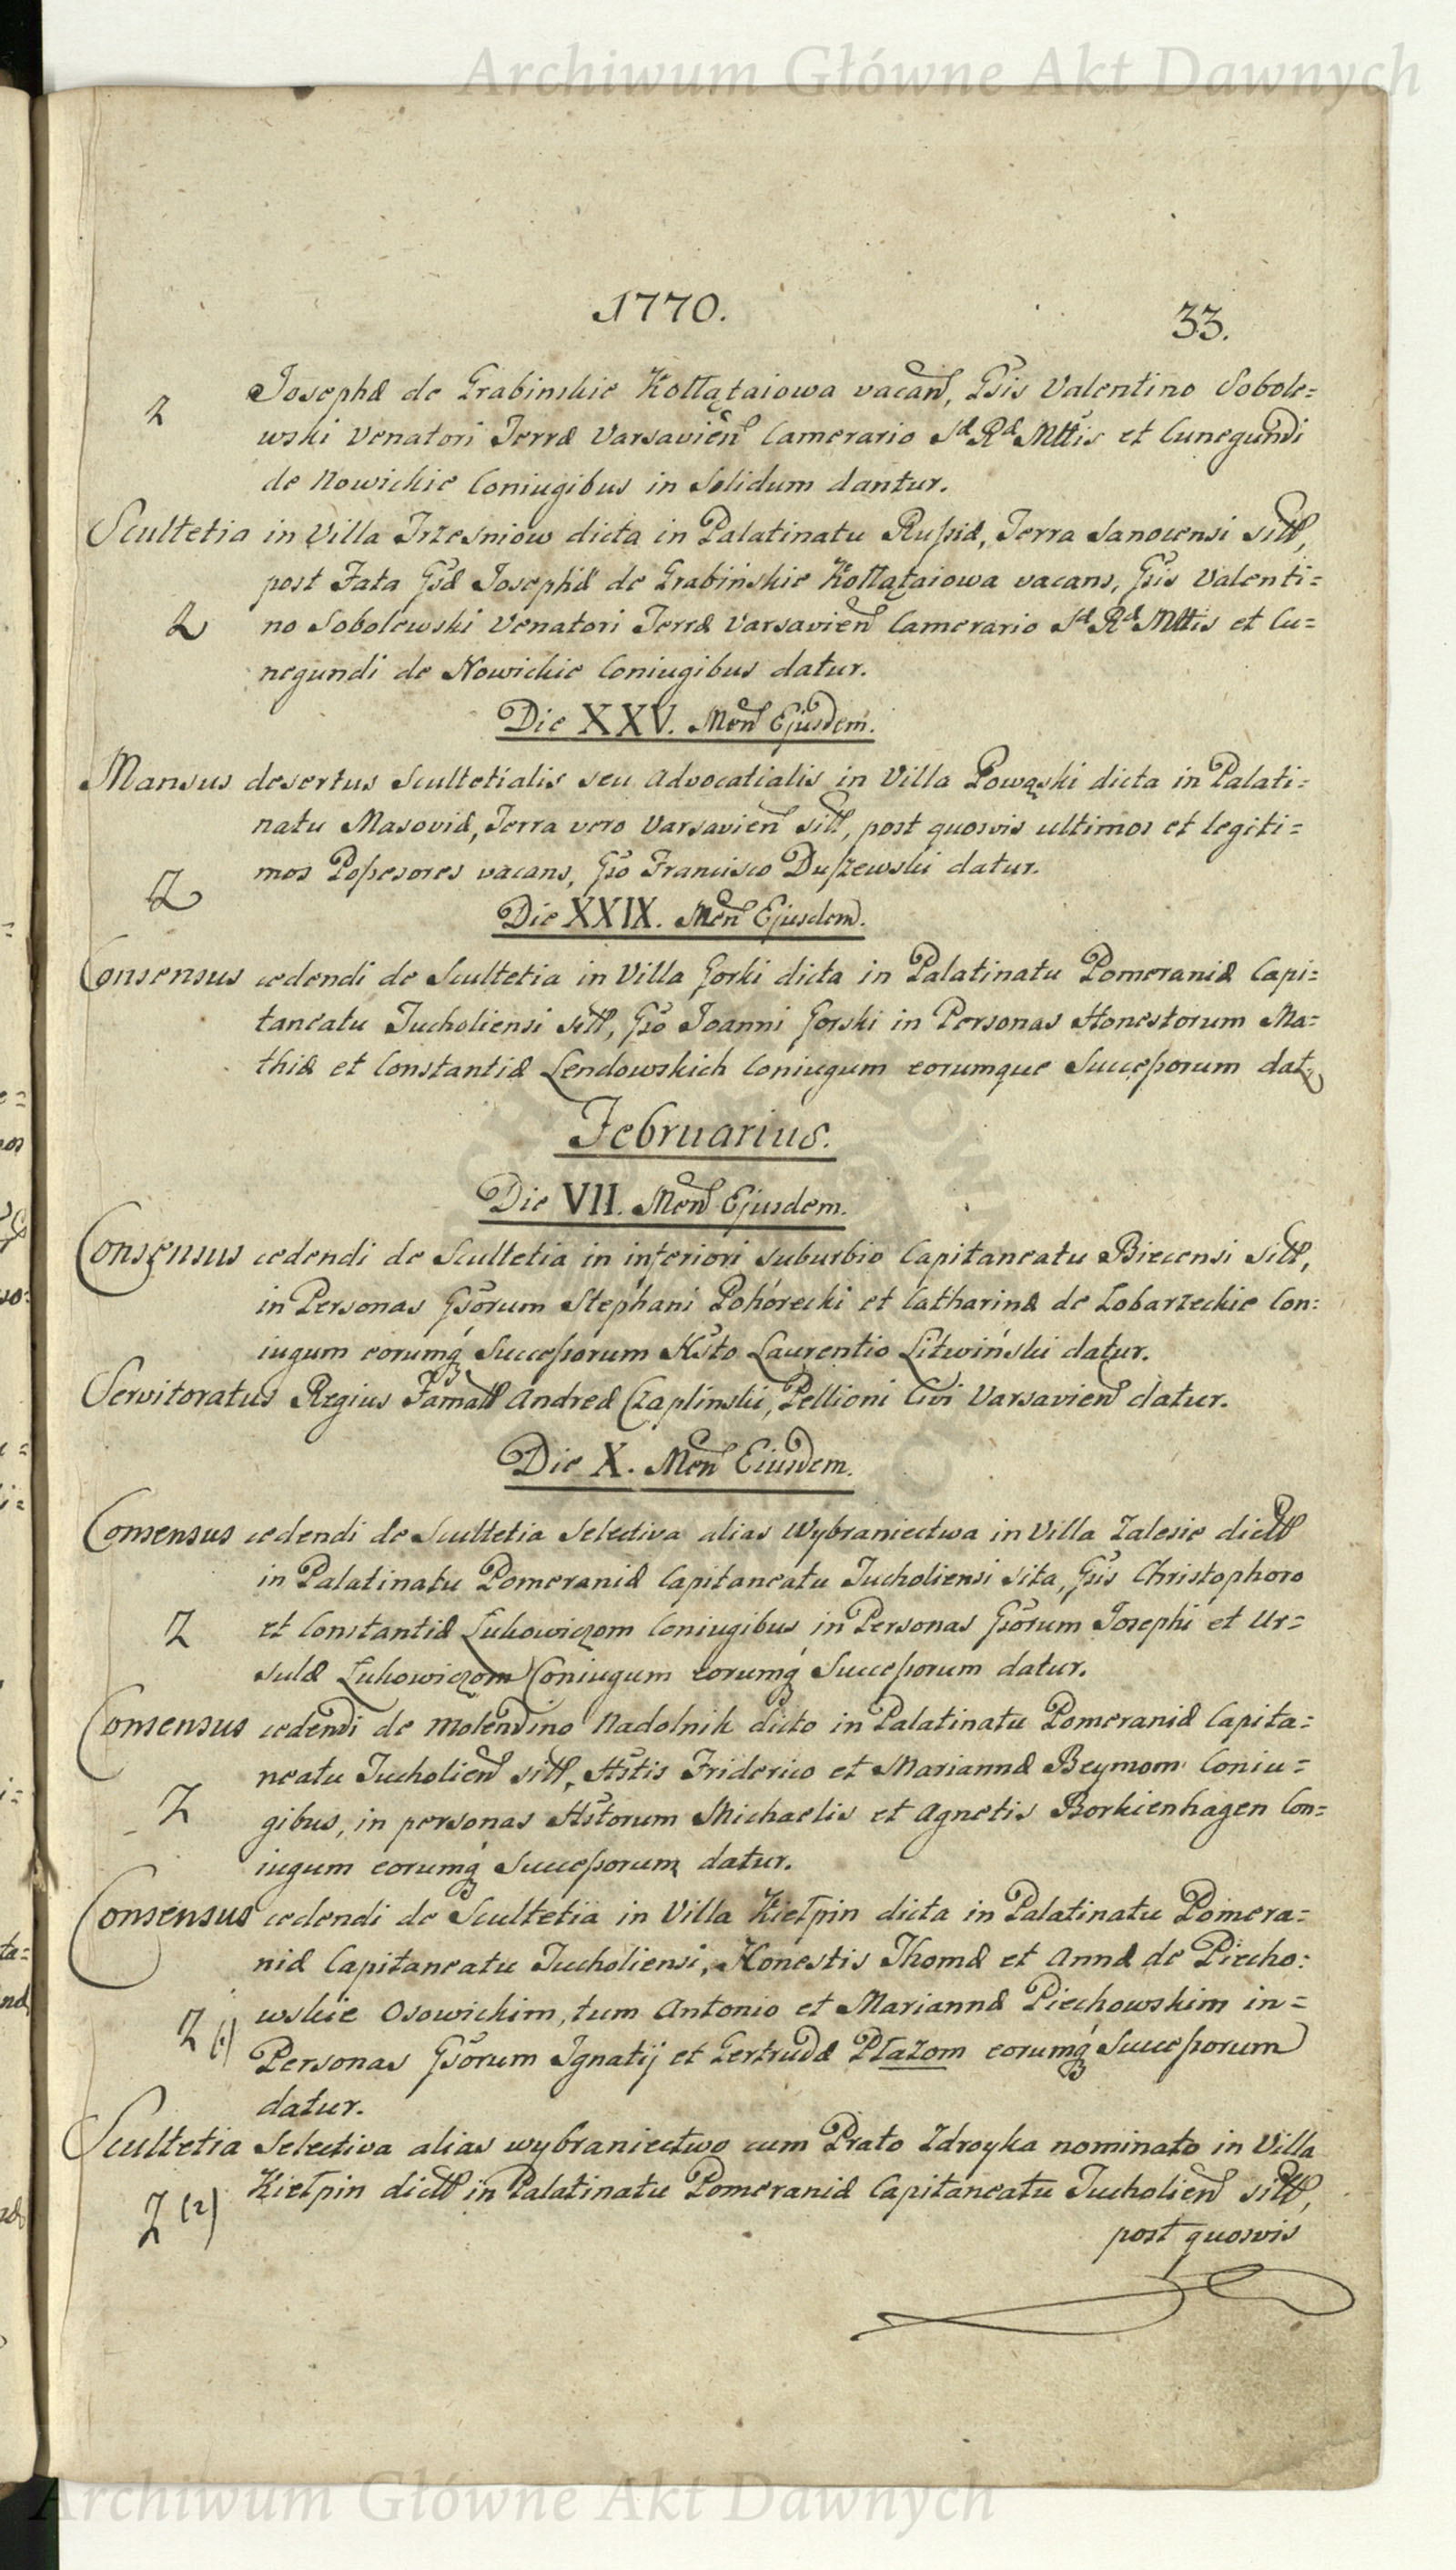 Archiwum Główne Akt Dawnych
1770. 33.
Josephæ de Grabinskie Kołłątaiowa vacan, Gsis Valentino Sobole=
2 wski Venatori Terræ Varsavien Camerario Sæ Ræ Mttis et Cunegundi
de Nowickie Coniugibus in Solidum dantur.
Scultetia in Villa Trzesniow dicta in Palatinatu Russiæ, Terra Sanocensi sitt,
post Fata Gsæ Josephæ de Grabińskie Kołłątaiowa vacans, Gsis Valenti=
2 no Sobolewski Venatori Terræ Varsavien Camerario Sæ Ræ Mttis et Cu=
negundi de Nowickie Coniugibus datur.
Die XXV. Men Ejusdem.
Mansus desertus Scultetialis seu Advocatialis in Villa Powąski dicta in Palati=
natu Masoviæ, Terra vero Varsavien sitt, post quosvis ultimos et legiti=
2 mos Possesores vacans, Gso Francisco Duszewski datur.
Die XXIX. Men Ejusdem.
Consensus cedendi de Scultetia in Villa Gorki dicta in Palatinatu Pomeraniæ Capi=
taneatu Tucholiensi sitt, Gso Joanni Gorski in Personas Honestorum Ma=
thiæ et Constantiæ Lendowskich Coniugum eorumque Successorum dat
Februarius.
Die VII. Men Ejusdem.
Consensus cedendi de Scultetia in inferiori suburbio Capitaneatu Biecensi sitt,
in Personas Gsorum Stephani Pohorecki et Catharinæ de Lobarzeckie Con:
iugum eorumq Successorum Hsto Laurentio Litwiński datur.
Servitoratus Regius Famatt Andreæ Czaplinski, Pellioni Civi Varsavien datur.
Die X. Men Eiusdem.
Consensus cedendi de Scultetia Selectiva alias Wybraniectwa in Villa Zalesie dictt
in Palatinatu Pomeraniæ Capitaneatu Tucholiensi sita, Gsis Christophoro
2 et Constantiæ Lukowiczom Coniugibus in Personas Gsorum Josephi et Ur=
sulæ Lukowiczom Coniugum eorumq Successorum datur.
Consensus cedendi de Molendino Nadolnik dicto in Palatinatu Pomeraniæ Capita=
neatu Tucholien sitt, Hstis Friderico et Mariannæ Beymom Coniu=
2 gibus, in personas Hstorum Michaelis et Agnetis Borkienhagen Con=
iugum eorumq Successorum datur.
Consensus cedendi de Scultetia in Villa Kiełpin dicta in Palatinatu Pomera=
niæ Capitaneatu Tucholiensi, Honestis Thomæ et Annæ de Piecho:
2 (1) wskie Osowickim, tum Antonio et Mariannæ Piechowskim in=
Personas Gsorum Ignatij et Gertrudæ Płazom eorumq Successorum
datur.
Scultetia Selectiva alias wybraniectwo cum Prato Zdroyka nominato in Villa
2 (2) Kiełpin dictt in Palatinatu Pomeraniæ Capitaneatu Tucholien sitt,
post quosvis
Archiwum Główne Akt Dawnych